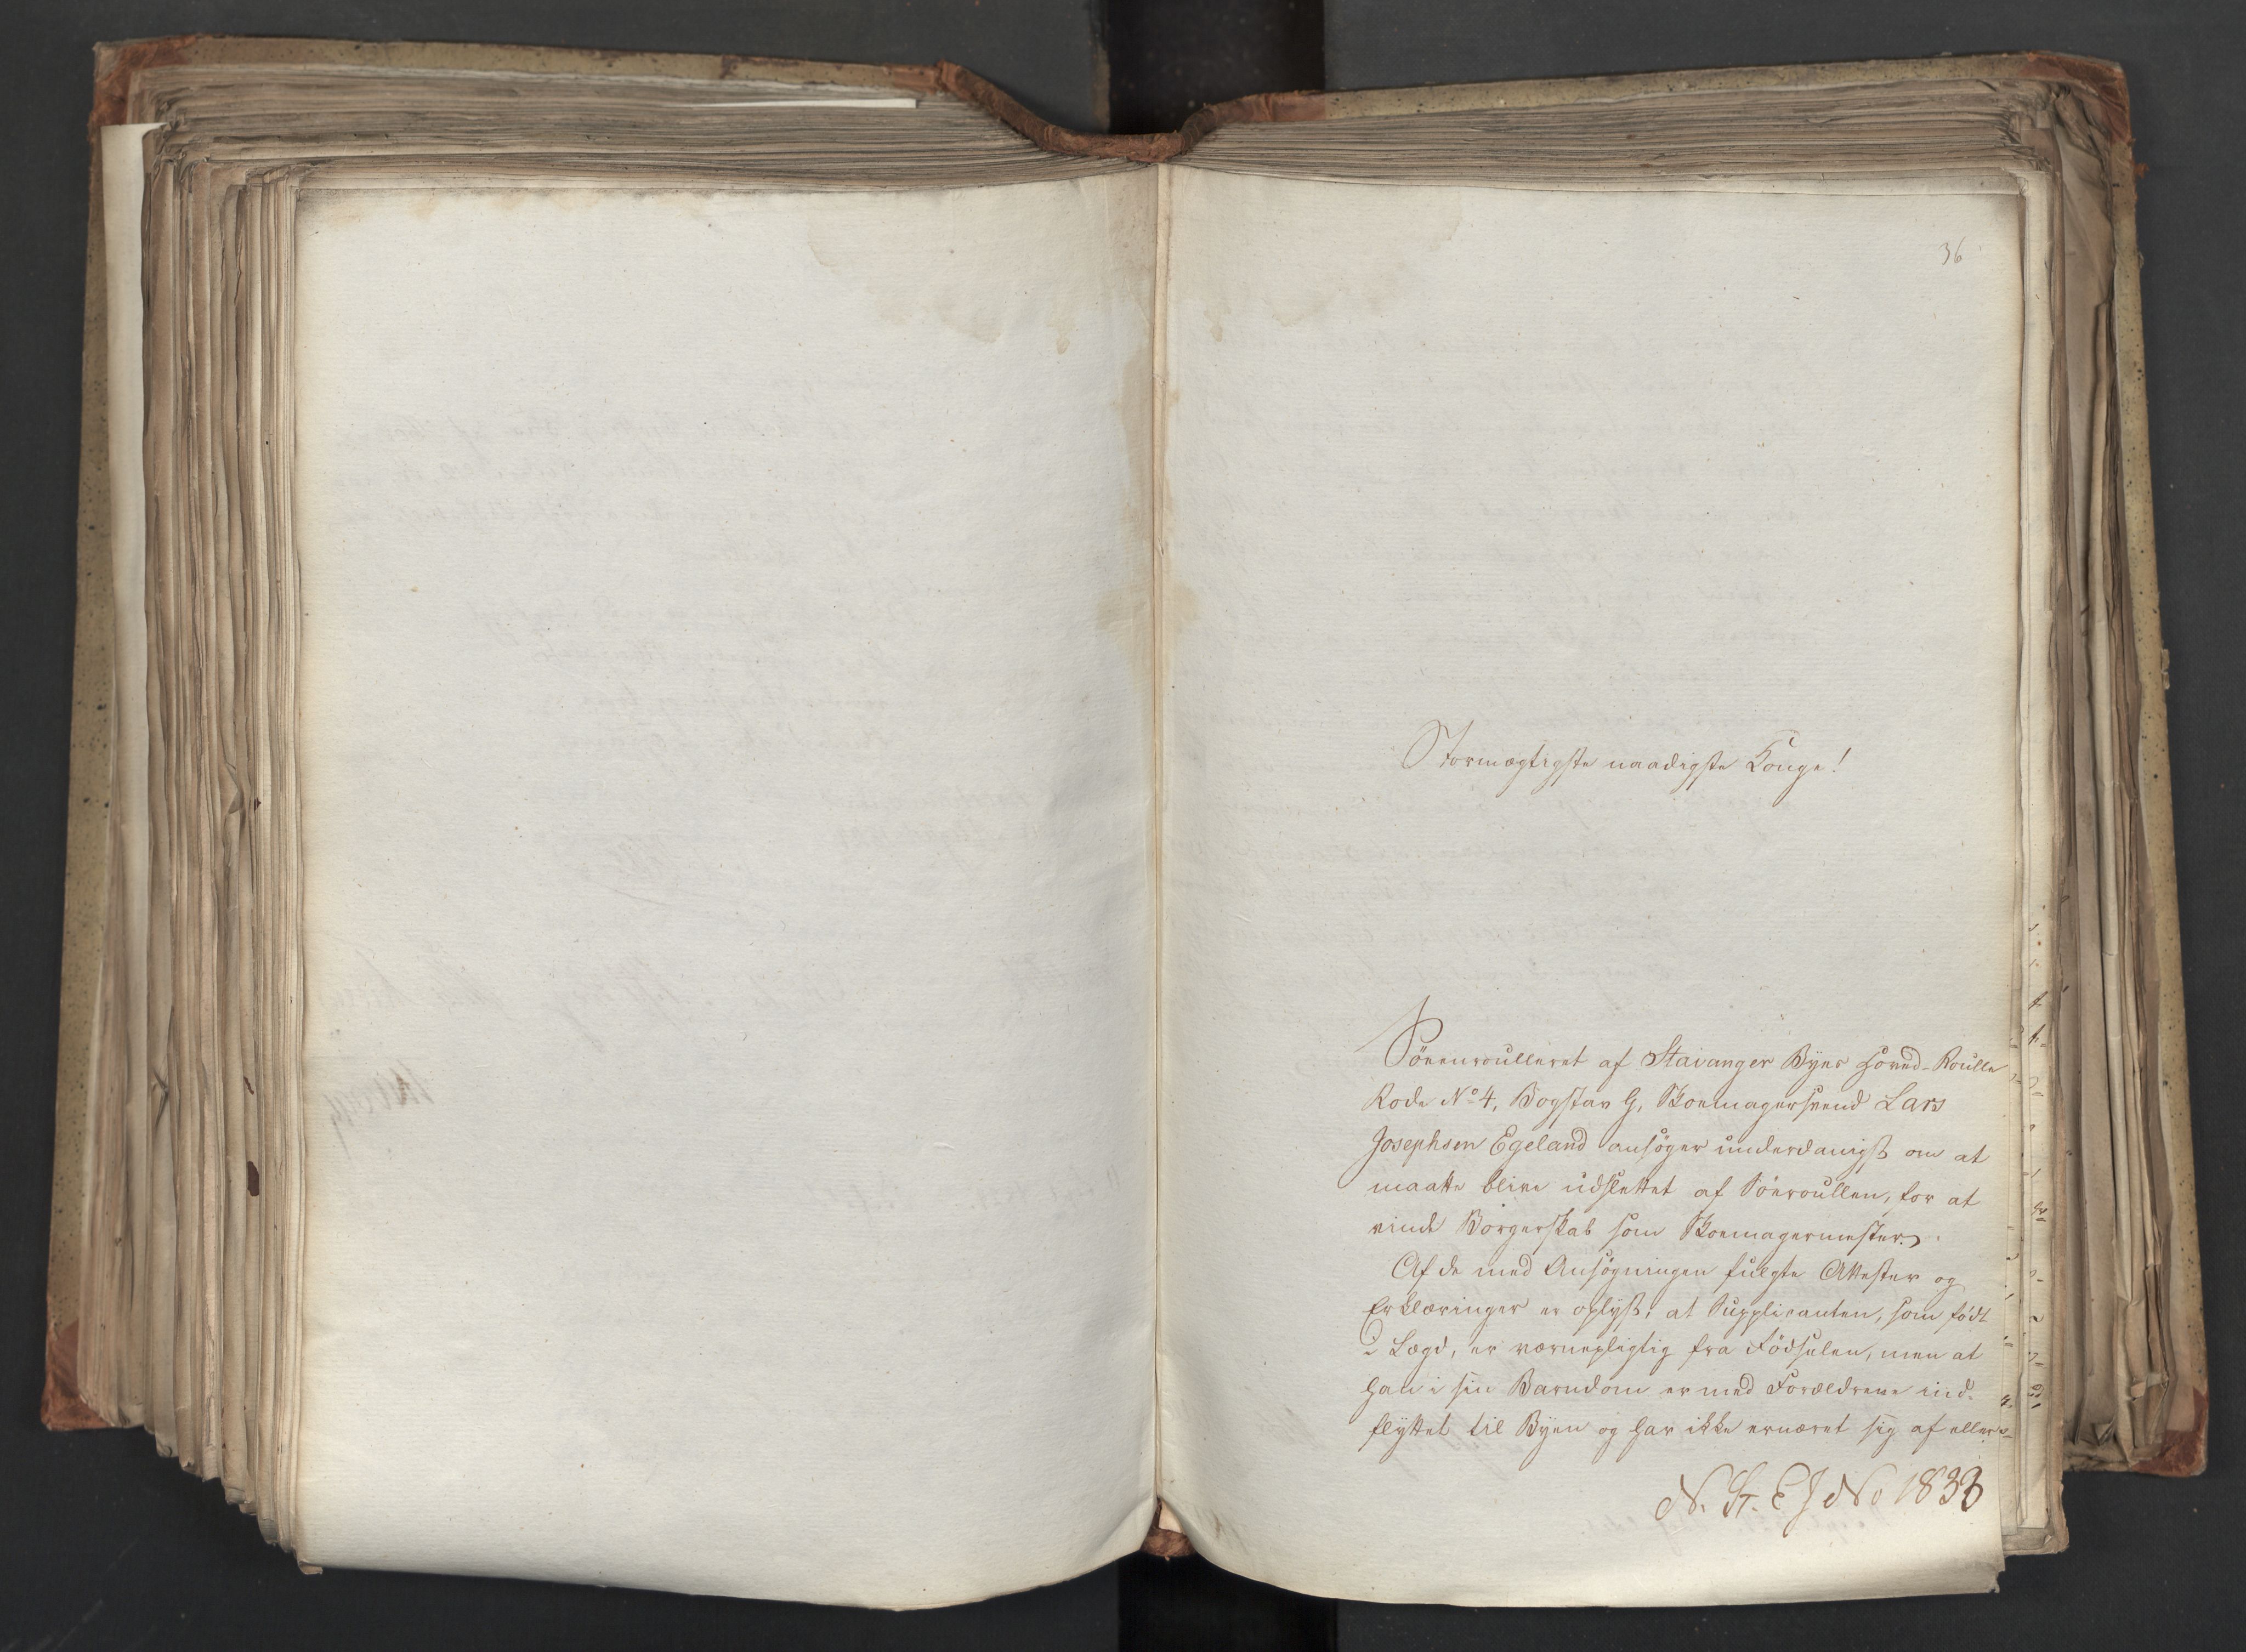 36
Stormægtigste naadigste Konge!
Søeenroulleret af Stavanger Byes Hoved-Roulle
Rode No 4, Bogstav G, Skoemagersvend Lars
Josephsen Egeland ansøger underdanigst om at
maatte blive udslettet af Søeroullen, for at
vinde Borgerskab som Skoemagermester.
Af de med Ansøgningen fulgte Attester og
Erklæringer er oplyst, at Supplicanten, som født
i Lægd, er værnepligtig fra Fødselen, men at
han i sin Barndom er med Forældrene ind-
flyttet til Byen og har ikke ernæret sig af eller
N. St. E J No 1833